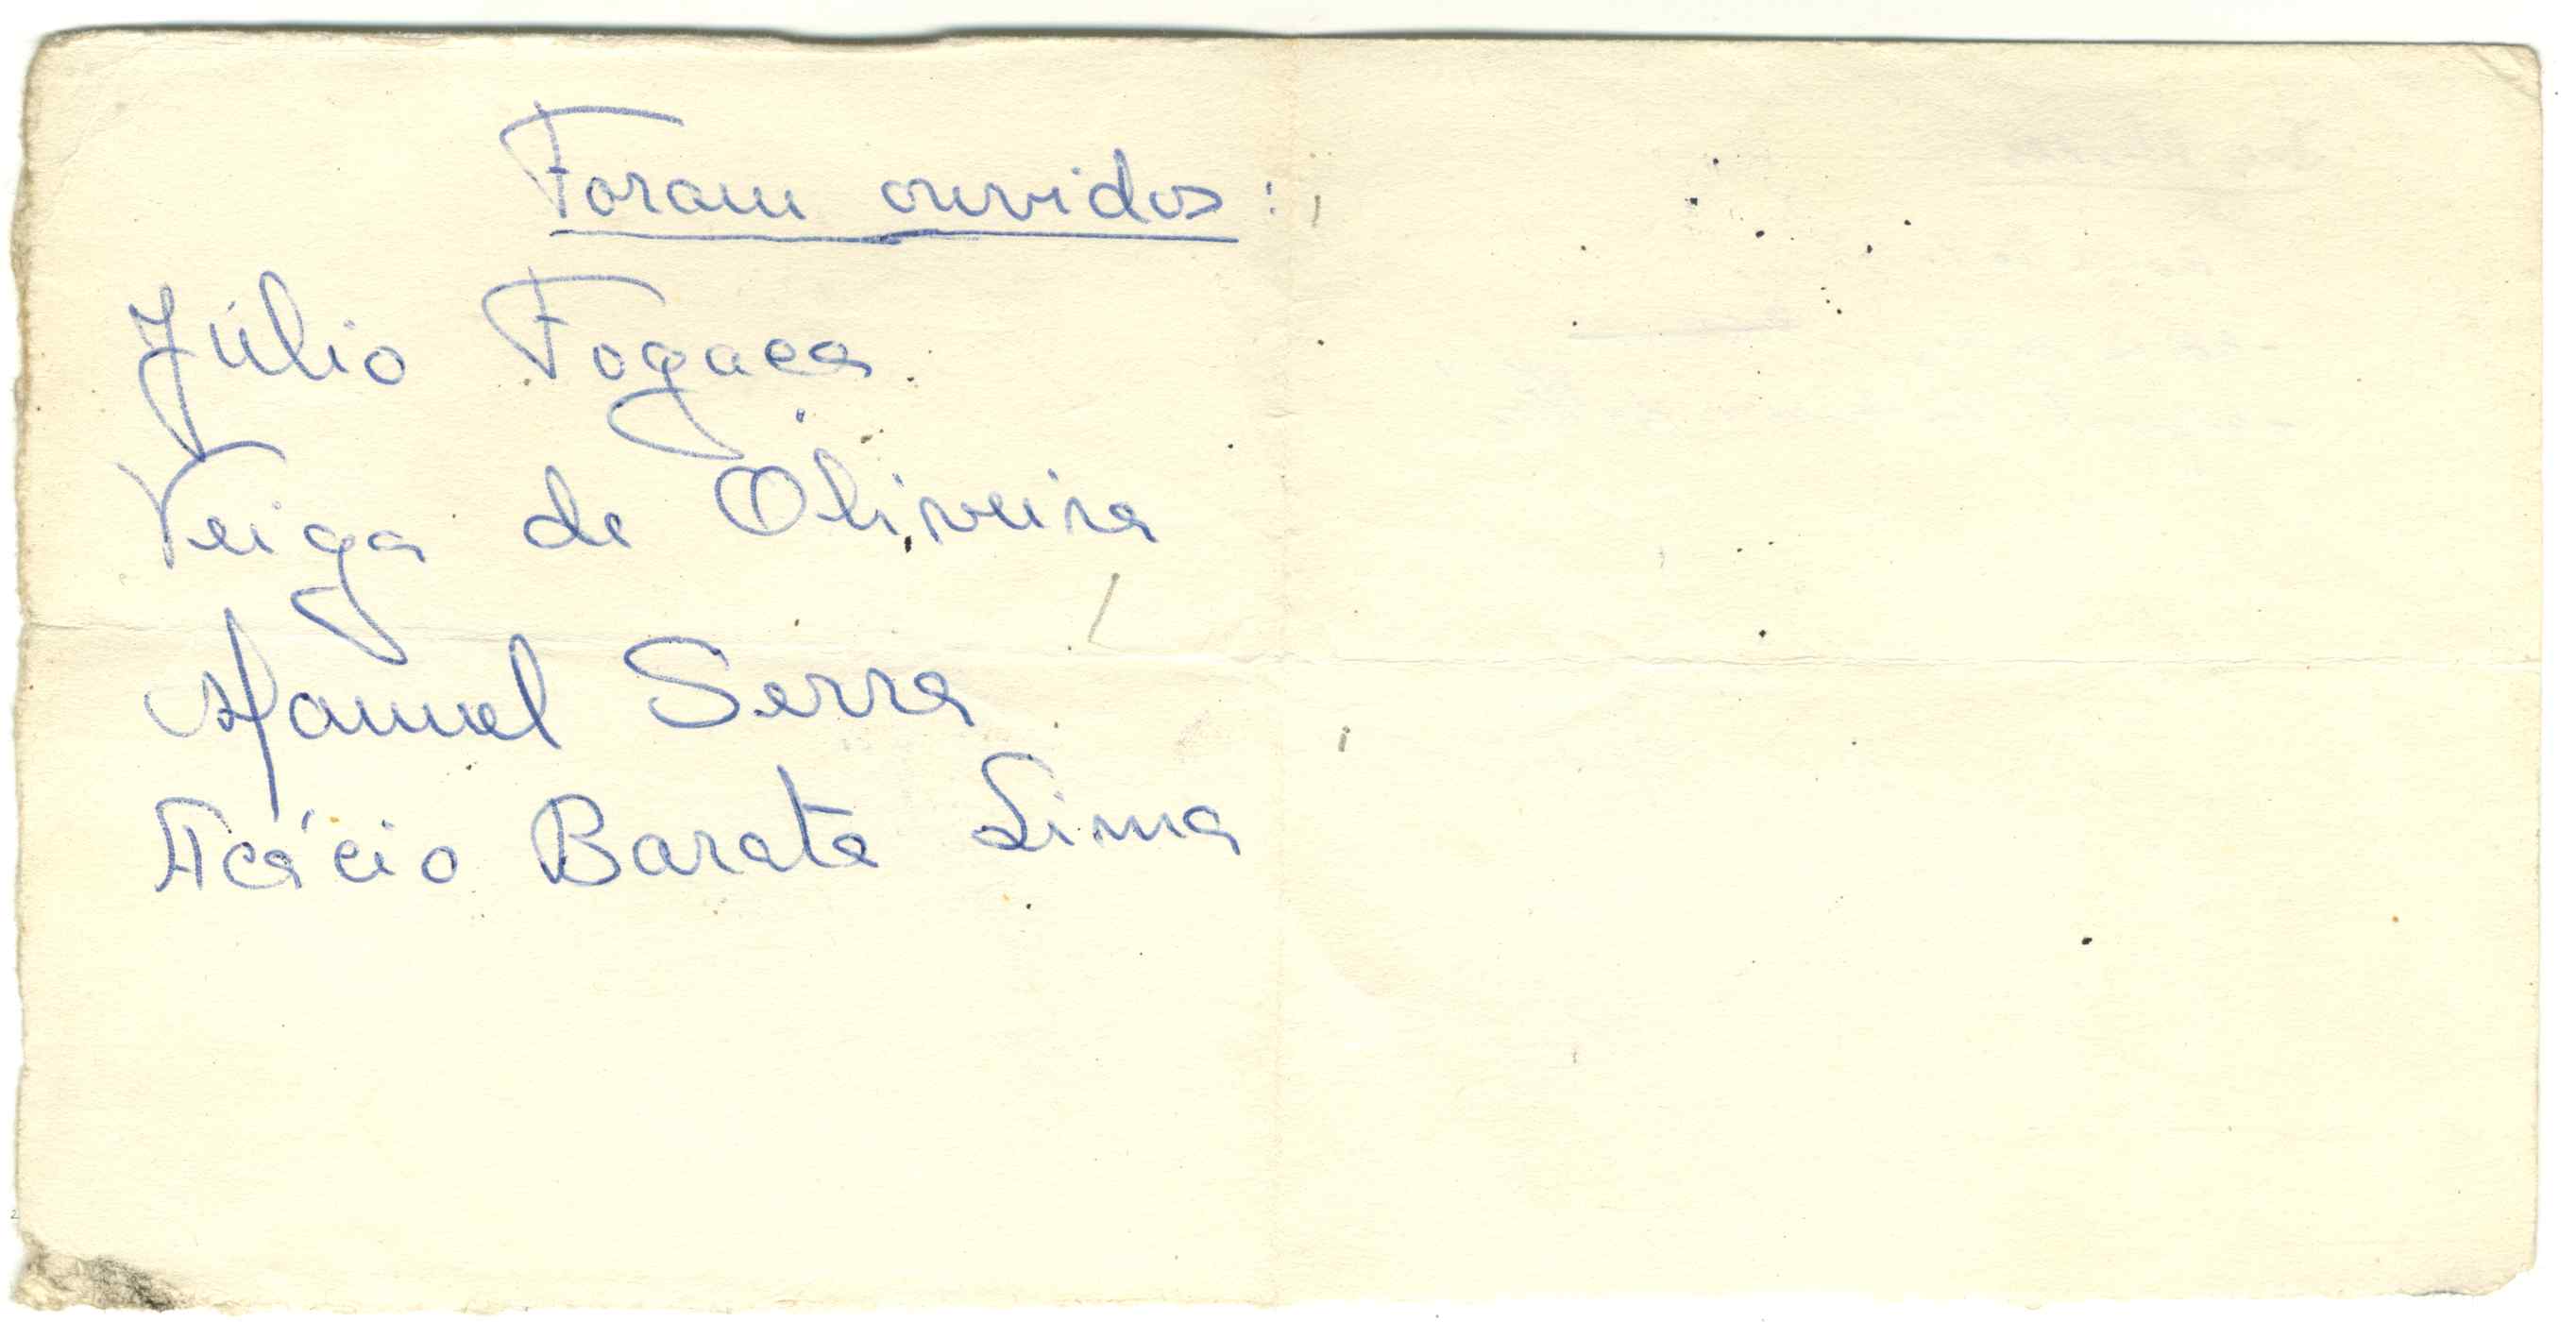 Foram ouvidos:
Júlio Fogaça
Veiga de Oliveira
Manuel Serra
Acácio Barata Lima